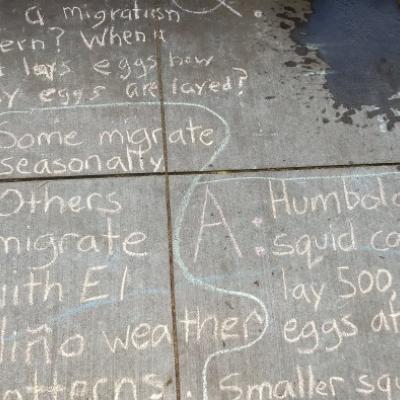 a migration Q.
ern? When a
lays eggs how
y eggs are layed?
Some migrate
seasonally
Others
migrate
with El
Niño weather
atterns.
A: Humbold
squid ca
lay 500,
eggs at
Smaller squ